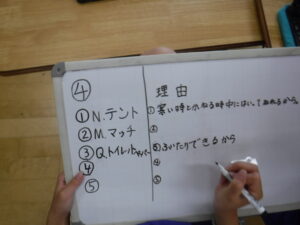 ④
①N.テント
②M.マッチ
③Q.トイレットペーパー
④
⑤
理由
①寒い時とかねる時中にはいってねれるから。
②
③ふかたりできるから
④
⑤